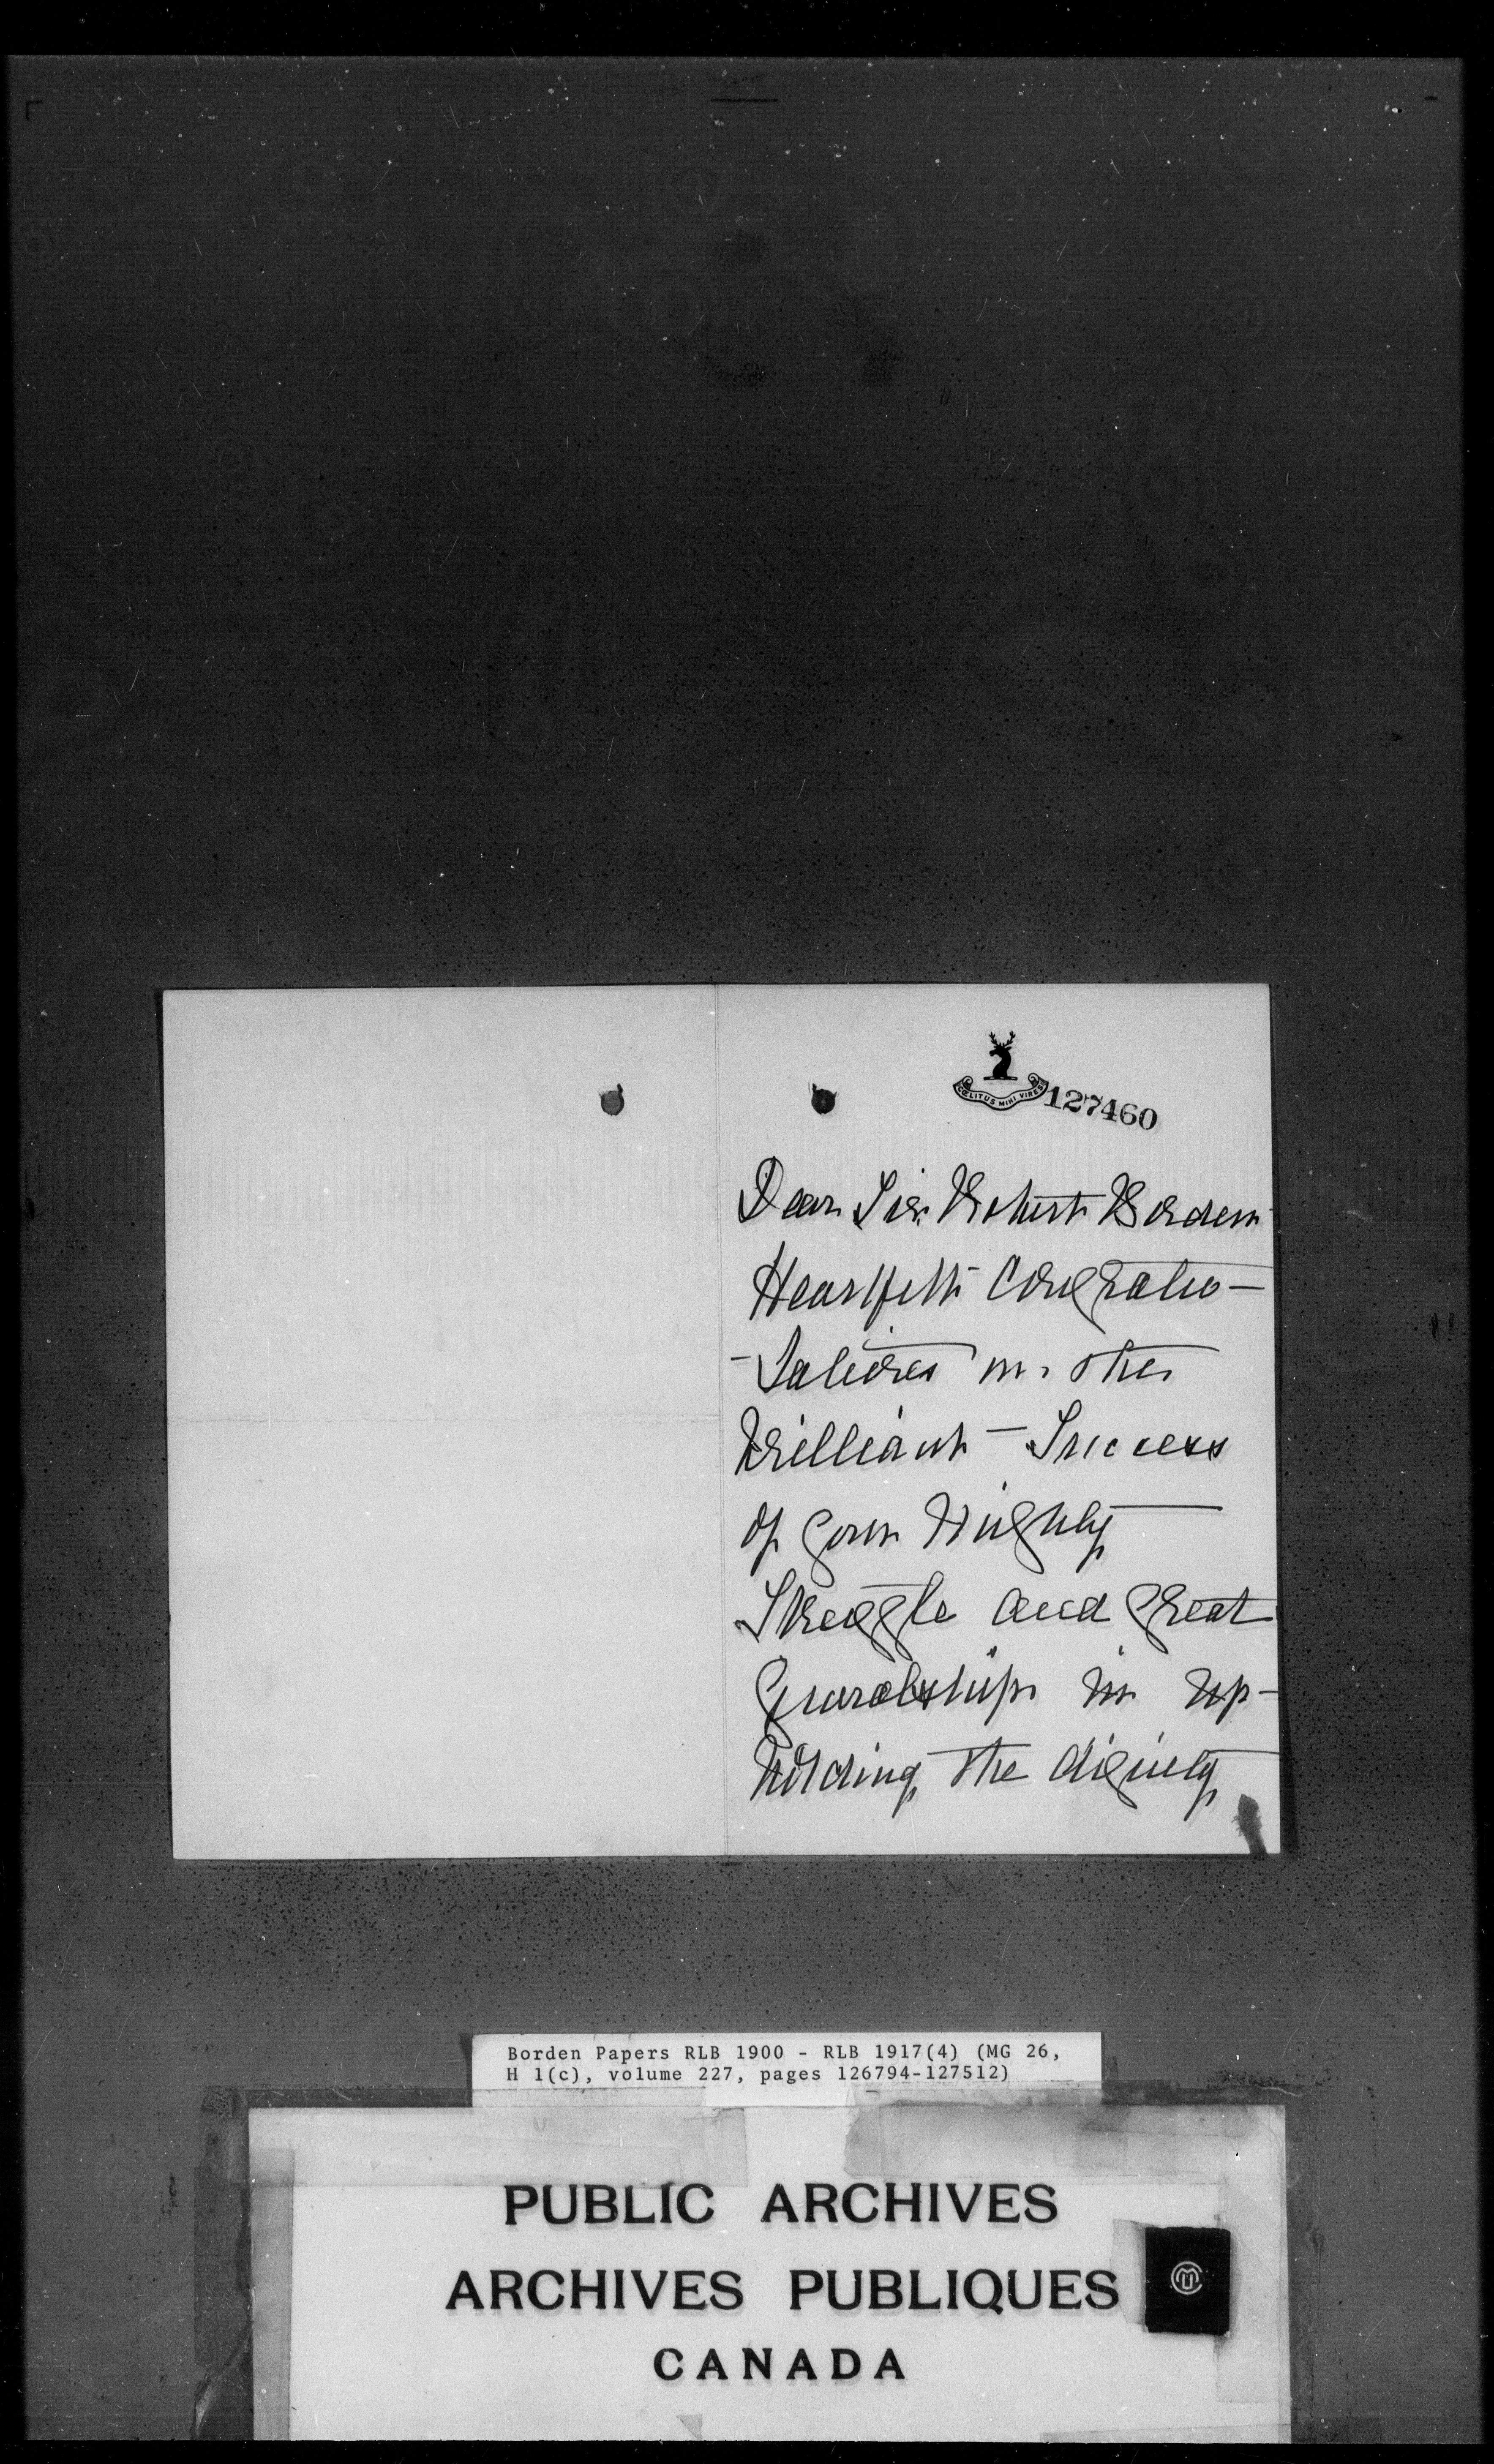 CŒLITUS MIHI VIRES
127460
Dear Sir Robert Borden
Heartfelt Congratu-
-lations on the
brilliant Success
of your mighty
Struggle and great
Guardship in up-
holding the dignity
Borden Papers RLB 1900 - RLB 1917(4) (MG 26,
H 1(c), volume 227, pages 126794-127512)
PUBLIC ARCHIVES
ARCHIVES PUBLIQUES
CANADA